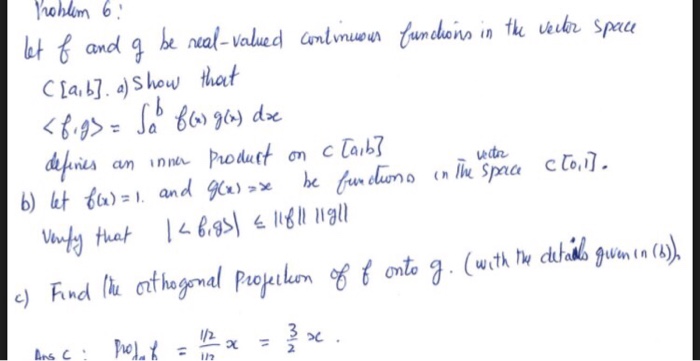 Problem 6:
let f and g be real-valued continuous functions in the vector space
C[a,b]. a) Show that
<f,g> = ∫ₐᵇ f(x) g(x) dx
defines an inner product on C[a,b]
b) let f(x)=1. and g(x)=x be functions in the vector space C[0,1].
Verify that |<f,g>| ≤ ||f|| ||g||
c) Find the orthogonal Projection of f onto g. (with the details given in (b)).
Ans C: Proj f = 1/2 / 1/3 x = 3/2 x.